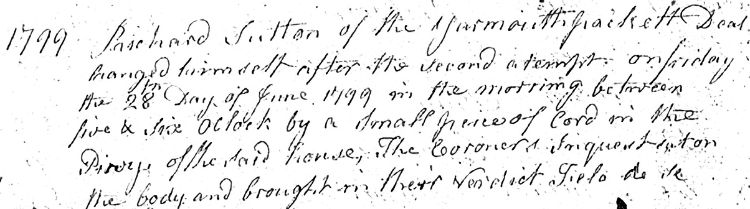 1799 Richard Sutton of the Yarmouth packett Deal
hanged himself after the second atempt on friday
the 28th Day of June 1799 in the morning between
five & six Oclock by a small piece of Cord in the
Privy of the said house, The Coroners Inquest set on
the body and brought in their Verdict Felo de se